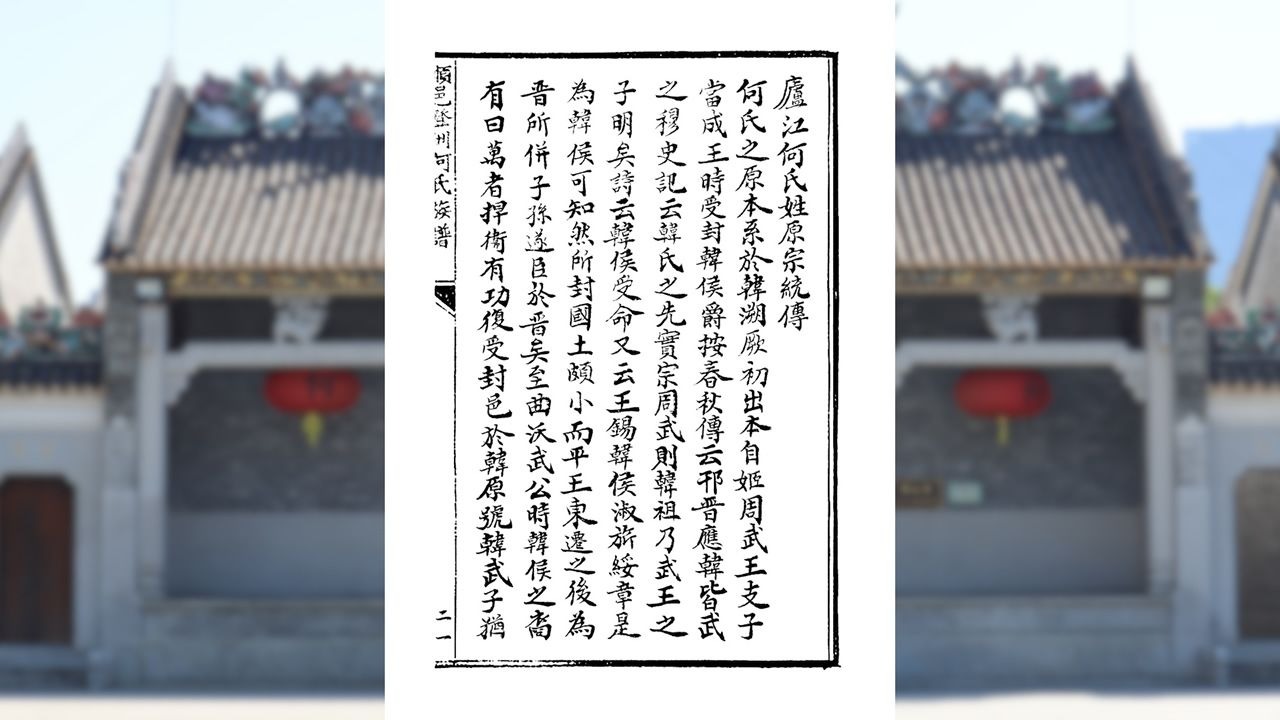 廬江何氏姓原宗統傳
何氏之原本系於韓溯厥初出本自姬周武王支子
當成王時受封韓侯爵按春秋傳云邘晋應韓皆武
之穆史記云韓氏之先實宗周武則韓祖乃武王之
子明矣詩云韓侯受命又云王錫韓侯淑旂綏章是
為韓侯可知然所封國土頗小而平王東遷之後為
晋所併子孫遂臣於晋矣至曲沃武公時韓侯之裔
有曰萬者捍衛有功復受封邑於韓原號韓武子猶
邑 州何氏族譜
二一